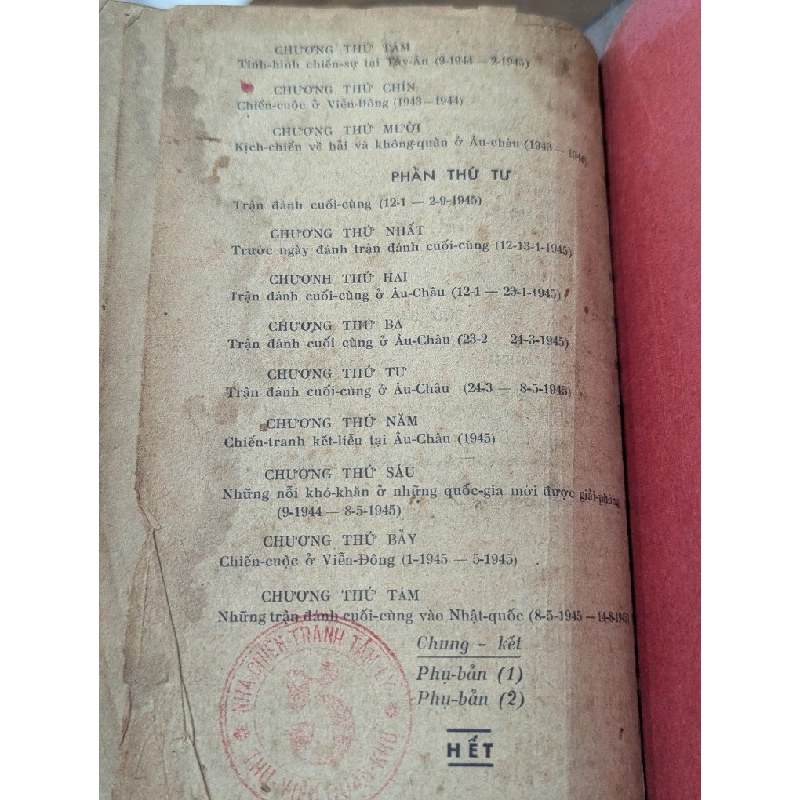 CHƯƠNG THỨ TÁM
Tình-hình chiến-sự tại Tây-Âu (9-1944 — 2-1945)
CHƯƠNG THỨ CHÍN
Chiến-cuộc ở Viễn-Đông (1943—1944)
CHƯƠNG THỨ MƯỜI
Kịch-chiến về hải và không-quân ở Âu-châu (1943 — 1944)
PHẦN THỨ TƯ
Trận đánh cuối-cùng (12-1 — 2-9-1945)
CHƯƠNG THỨ NHẤT
Trước ngày đánh trận đánh cuối-cùng (12-13-1-1945)
CHƯƠNH THỨ HAI
Trận đánh cuối-cùng ở Âu-Châu (12-1 — 23-1-1945)
CHƯƠNG THỨ BA
Trận đánh cuối cùng ở Âu-Châu (23-2 24-3-1945)
CHƯƠNG THỨ TƯ
Trận đánh cuối-cùng ở Âu-Châu (24-3 — 8-5-1945)
CHƯƠNG THỨ NĂM
Chiến-tranh kết-liễu tại Âu-Châu (1945)
CHƯƠNG THỨ SÁU
Những nỗi khó-khăn ở những quốc-gia mới được giải-phóng
(9-1944 — 8-5-1945)
CHƯƠNG THỨ BẢY
Chiến-cuộc ở Viễn-Đông (1-1945 — 5-1945)
CHƯƠNG THỨ TÁM
Những trận đánh cuối-cùng vào Nhật-quốc (8-5-1945 —14-8-1945
Chung - kết
Phụ-bản (1)
Phụ-bản (2)
HẾT
CHIẾN TRANH TÂM LÝ
THƯ VIỆN QUÂN KHU
5